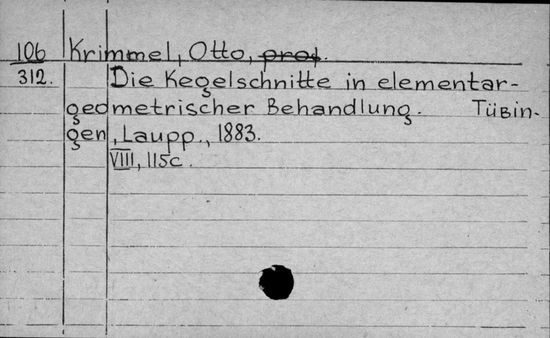 106 Krimmel, Otto, prof.
312. Die Kegelschnitte in elementar-
geometrischer Behandlung. Tübin-
gen, Laupp., 1883.
VIII, 115c.